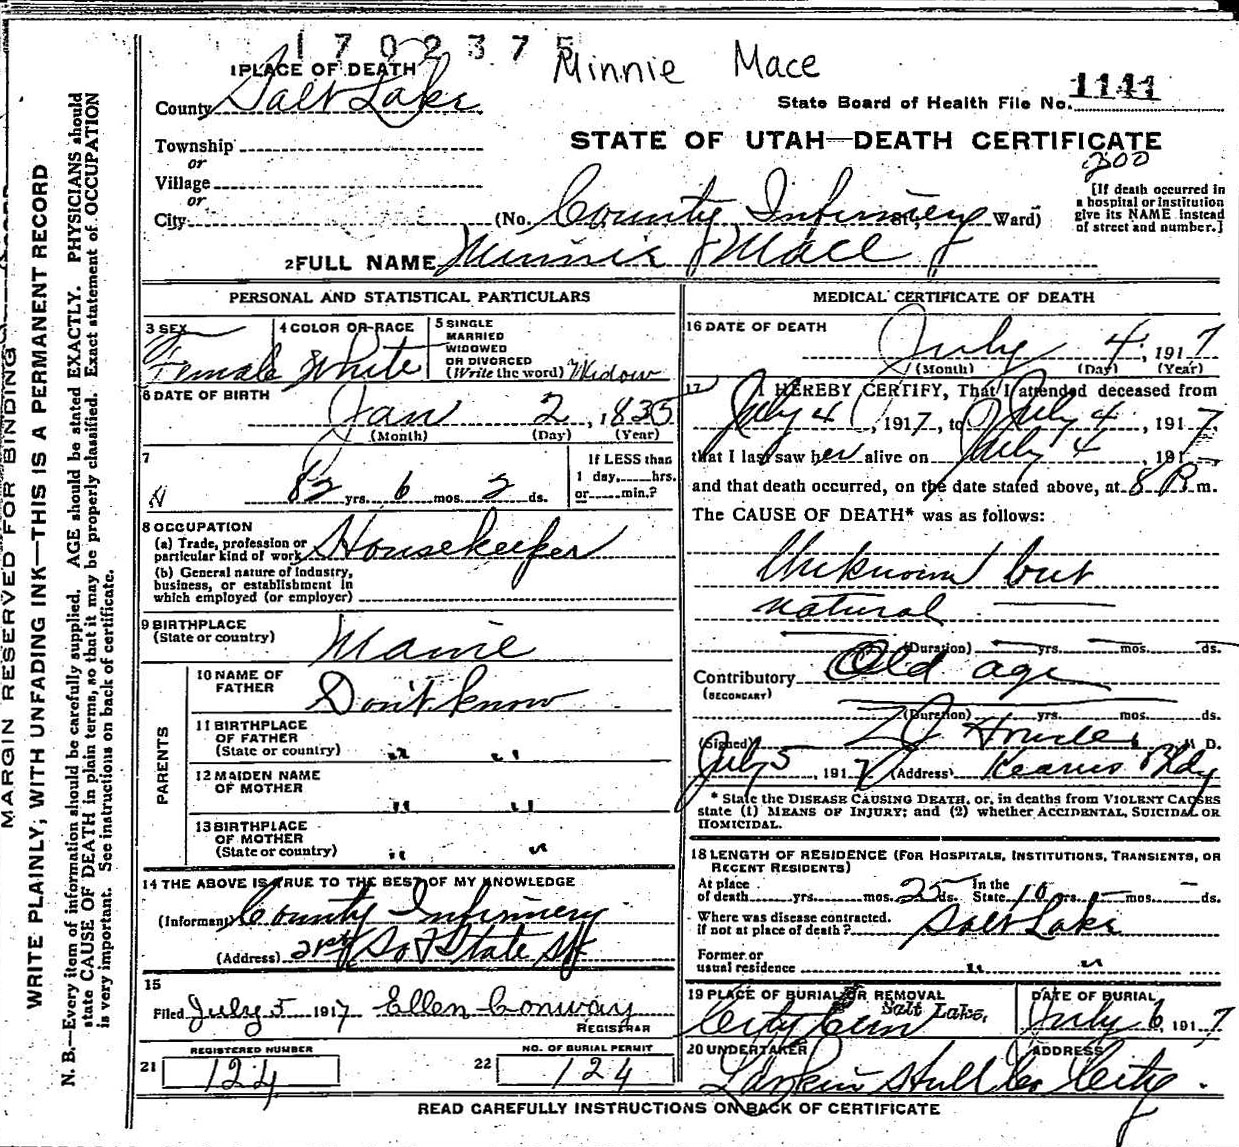 1702375
Minnie Mace
1 PLACE OF DEATH
County Salt Lake
State Board of Health File No. 1141
Township
or
Village
or
City
STATE OF UTAH—DEATH CERTIFICATE
300
(No. County Infirmery St., Ward)
[If death occurred in
a hospital or institution
give its NAME instead
of street and number.]
2 FULL NAME Minnie Mace
PERSONAL AND STATISTICAL PARTICULARS
3 SEX
Female
4 COLOR OR RACE
White
5 SINGLE
MARRIED
WIDOWED
OR DIVORCED
(Write the word) Widow
6 DATE OF BIRTH
Jan 2, 1835
(Month) (Day) (Year)
7
82 yrs. 6 mos. 2 ds.
If LESS than
1 day, hrs.
or min.?
8 OCCUPATION
(a) Trade, profession or
particular kind of work Housekeeper
(b) General nature of industry,
business, or establishment in
which employed (or employer)
9 BIRTHPLACE
(State or country) Maine
PARENTS
10 NAME OF
FATHER Don't know
11 BIRTHPLACE
OF FATHER
(State or country) " "
12 MAIDEN NAME
OF MOTHER " "
13 BIRTHPLACE
OF MOTHER
(State or country) " "
14 THE ABOVE IS TRUE TO THE BEST OF MY KNOWLEDGE
(Informant) County Infirmery
(Address) 21st So & State St
15
Filed July 5 1917 Ellen Conway
REGISTRAR
21 REGISTERED NUMBER
124
22 NO. OF BURIAL PERMIT
124
MEDICAL CERTIFICATE OF DEATH
16 DATE OF DEATH
July 4, 1917
(Month) (Day) (Year)
17 I HEREBY CERTIFY, That I attended deceased from
July 4, 1917, to July 4, 1917,
that I last saw her alive on July 4, 191
and that death occurred, on the date stated above, at 8 P. m.
The CAUSE OF DEATH* was as follows:
Unknown but
natural
(Duration) yrs. mos. ds.
Contributory Old age
(SECONDARY)
(Duration) yrs. mos. ds.
(Signed) M. D.
July 5, 1917 (Address) Kearns Bldg
* State the DISEASE CAUSING DEATH, or, in deaths from VIOLENT CAUSES
state (1) MEANS OF INJURY; and (2) whether ACCIDENTAL, SUICIDAL OR
HOMICIDAL.
18 LENGTH OF RESIDENCE (FOR HOSPITALS, INSTITUTIONS, TRANSIENTS, OR
RECENT RESIDENTS)
At place
of death yrs. mos. 25 ds. In the
State 10 yrs. mos. ds.
Where was disease contracted,
if not at place of death? Salt Lake
Former or
usual residence " "
19 PLACE OF BURIAL OR REMOVAL
City Cem Salt Lake,
DATE OF BURIAL
July 6, 1917
20 UNDERTAKER
Larkin Hull Co
ADDRESS
City.
READ CAREFULLY INSTRUCTIONS ON BACK OF CERTIFICATE
MARGIN RESERVED FOR BINDING
WRITE PLAINLY, WITH UNFADING INK—THIS IS A PERMANENT RECORD
N. B.—Every item of information should be carefully supplied. AGE should be stated EXACTLY. PHYSICIANS should
state CAUSE OF DEATH in plain terms, so that it may be properly classified. Exact statement of OCCUPATION
is very important. See instructions on back of certificate.